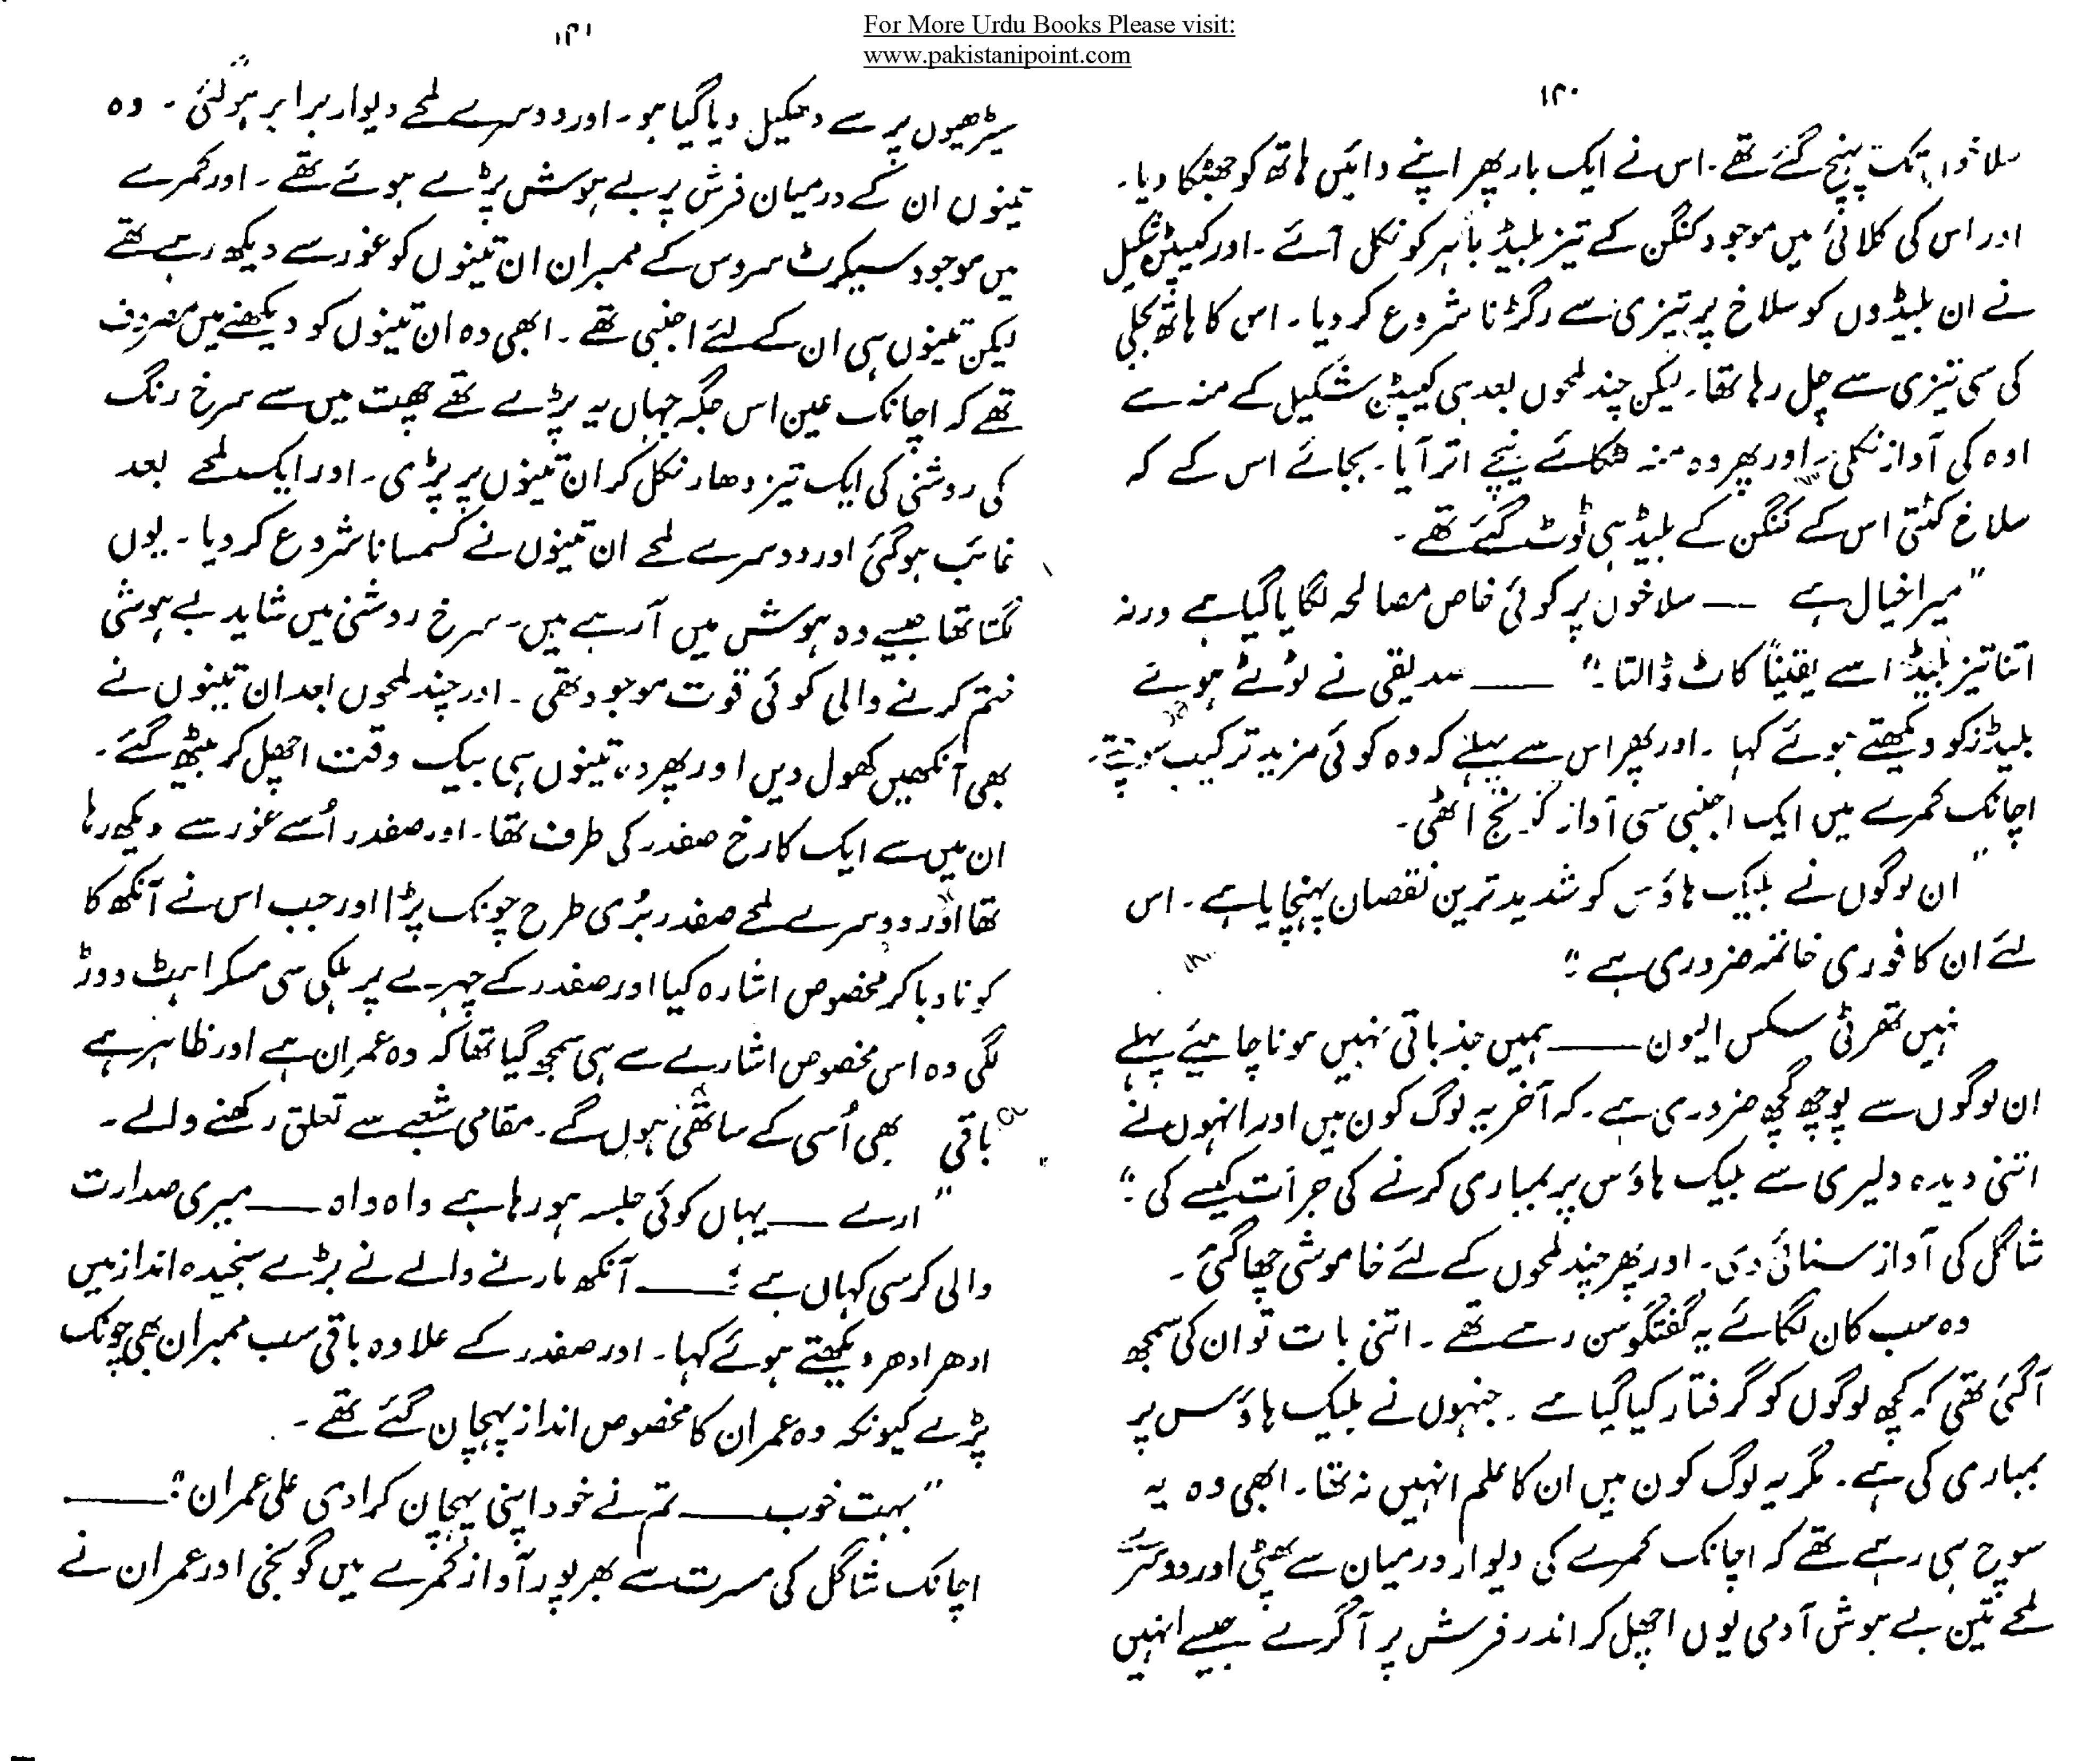 For More Urdu Books Please visit:
www.pakistanipoint.com
۱۴۰
سلاخوں تک پہنچ گئے تھے۔ اس نے ایک بار پھر اپنے دائیں ہاتھ کو جھٹکا دیا۔
اور اس کی کلائی میں موجود کنگن کے تیز بلیڈ باہر کو نکل آئے۔ اور کیپٹن شکیل
نے ان بلیڈوں کو سلاخ پر تیزی سے رگڑنا شروع کر دیا۔ اس کا ہاتھ بجلی
کی سی تیزی سے چل رہا تھا۔ لیکن چند لمحوں بعد ہی کیپٹن شکیل کے منہ سے
اوہ کی آواز نکلی۔ اور پھر وہ منہ لٹکائے نیچے اتر آیا۔ بجائے اس کے کہ
سلاخ کٹتی اس کے کنگن کے بلیڈ ہی ٹوٹ گئے تھے۔
"میرا خیال ہے —— سلاخوں پر کوئی خاص مصالحہ لگایا گیا ہے ورنہ
اتنا تیز بلیڈ اسے یقیناً کاٹ ڈالتا۔" —— صدیقی نے ٹوٹے ہوئے
بلیڈز کو دیکھتے ہوئے کہا۔ اور پھر اس سے پہلے کہ وہ کوئی مزید ترکیب سوچتے۔
اچانک کمرے میں ایک اجنبی سی آواز گونج اٹھی۔
"ان لوگوں نے بلیک ہاؤس کو شدید ترین نقصان پہنچایا ہے۔ اس
لئے ان کا فوری خاتمہ ضروری ہے"
نہیں تھرٹی سکس الیون —— ہمیں جذباتی نہیں ہونا چاہیئے پہلے
ان لوگوں سے پوچھ گچھ ضروری ہے۔ کہ آخر یہ لوگ کون ہیں اور انہوں نے
اتنی دیدہ دلیری سے بلیک ہاؤس پر بمباری کرنے کی جرأت کیسے کی"
شاگل کی آواز سنائی دی۔ اور پھر چند لمحوں کے لئے خاموشی چھا گئی۔
وہ سب کان لگائے یہ گفتگو سن رہے تھے۔ اتنی بات تو ان کی سمجھ
آ گئی تھی کہ کچھ لوگوں کو گرفتار کیا گیا ہے۔ جنہوں نے بلیک ہاؤس پر
بمباری کی ہے۔ مگر یہ لوگ کون ہیں ان کا علم انہیں نہ تھا۔ ابھی وہ یہ
سوچ ہی رہے تھے کہ اچانک کمرے کی دیوار درمیان سے پھٹی اور دوسرے
لمحے تین بے ہوش آدمی یوں اچھل کر اندر فرش پر آ گرے جیسے انہیں
۱۴۱
سیڑھیوں پر سے دھکیل دیا گیا ہو۔ اور دوسرے لمحے دیوار برابر ہو گئی۔ وہ
تینوں ان کے درمیان فرش پر بے ہوش پڑے ہوئے تھے۔ اور کمرے
میں موجود سیکرٹ سروس کے ممبران ان تینوں کو غور سے دیکھ رہے تھے
لیکن تینوں ہی ان کے لئے اجنبی تھے۔ ابھی وہ ان تینوں کو دیکھنے میں مصروف
تھے کہ اچانک عین اس جگہ جہاں یہ پڑے تھے چھت میں سے سرخ رنگ
کی روشنی کی ایک تیز دھار نکل کر ان تینوں پر پڑی۔ اور ایک لمحے بعد
غائب ہو گئی اور دوسرے لمحے ان تینوں نے کسمسانا شروع کر دیا۔ یوں
لگتا تھا جیسے وہ ہوش میں آ رہے ہیں۔ سرخ روشنی میں شاید بے ہوشی
ختم کرنے والی کوئی قوت موجود تھی۔ اور چند لمحوں بعد ان تینوں نے
بھی آنکھیں کھول دیں اور پھر وہ تینوں ہی بیک وقت اچھل کر بیٹھ گئے۔
ان میں سے ایک کا رخ صفدر کی طرف تھا۔ اور صفدر اُسے غور سے دیکھ رہا
تھا اور دوسرے لمحے صفدر بُری طرح چونک پڑا اور جب اس نے آنکھ کا
کونا دبا کر مخصوص اشارہ کیا اور صفدر کے چہرے پر ہلکی سی مسکراہٹ دوڑ
گئی وہ اس مخصوص اشارے سے ہی سمجھ گیا تھا کہ وہ عمران ہے اور ظاہر ہے
باقی بھی اُسی کے ساتھی ہوں گے۔ مقامی شعبے سے تعلق رکھنے والے۔
"ارے —— یہاں کوئی جلسہ ہو رہا ہے واہ واہ —— میری صدارت
والی کرسی کہاں ہے" —— آنکھ مارنے والے نے بڑے سنجیدہ انداز میں
ادھر ادھر دیکھتے ہوئے کہا۔ اور صفدر کے علاوہ باقی سب ممبران بھی چونک
پڑے کیونکہ وہ عمران کا مخصوص انداز پہچان گئے تھے۔
"بہت خوب —— تم نے خود اپنی پہچان کرا دی علی عمران" ——
اچانک شاگل کی مسرت سے بھرپور آواز کمرے میں گونجی اور عمران نے